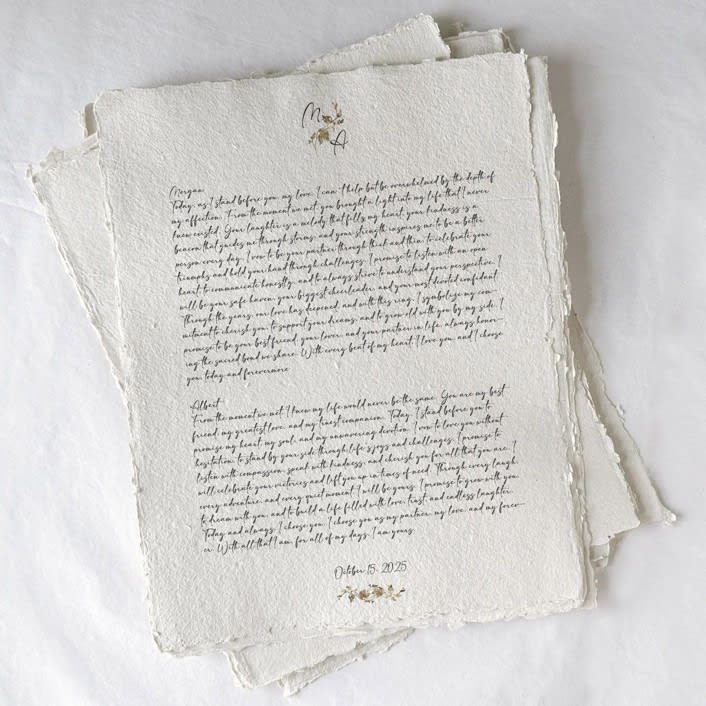 M
A
Morgan
Today, as I stand before you, my love, I can't help but be overwhelmed by the depth of
my affection. From the moment we met, you brought a light into my life that I never
knew existed. Your laughter is a melody that fills my heart, your kindness is a
beacon that guides me through storms, and your strength inspires me to be a better
person every day. I vow to be your partner through thick and thin, to celebrate your
triumphs and hold your hand through challenges. I promise to listen with an open
heart, to communicate honestly, and to always strive to understand your perspective. I
will be your safe haven, your biggest cheerleader, and your most devoted confidant.
Through the years, our love has deepened, and with this ring, I symbolize my com-
mitment to cherish you, to support your dreams, and to grow old with you by my side. I
promise to be your best friend, your lover, and your partner in life, always honor-
ing the sacred bond we share. With every beat of my heart, I love you, and I choose
you, today and forevermore.
Albert
From the moment we met, I knew my life would never be the same. You are my best
friend, my greatest love, and my truest companion. Today, I stand before you to
promise my heart, my soul, and my unwavering devotion. I vow to love you without
hesitation, to stand by your side through life's joys and challenges. I promise to
listen with compassion, speak with kindness, and cherish you for all that you are. I
will celebrate your victories and lift you up in times of need. Through every laugh,
every adventure, and every quiet moment, I will be yours. I promise to grow with you,
to dream with you, and to build a life filled with love, trust, and endless laughter.
Today and always, I choose you. I choose you as my partner, my love, and my forev-
er. With all that I am, for all of my days, I am yours.
October 15, 2025